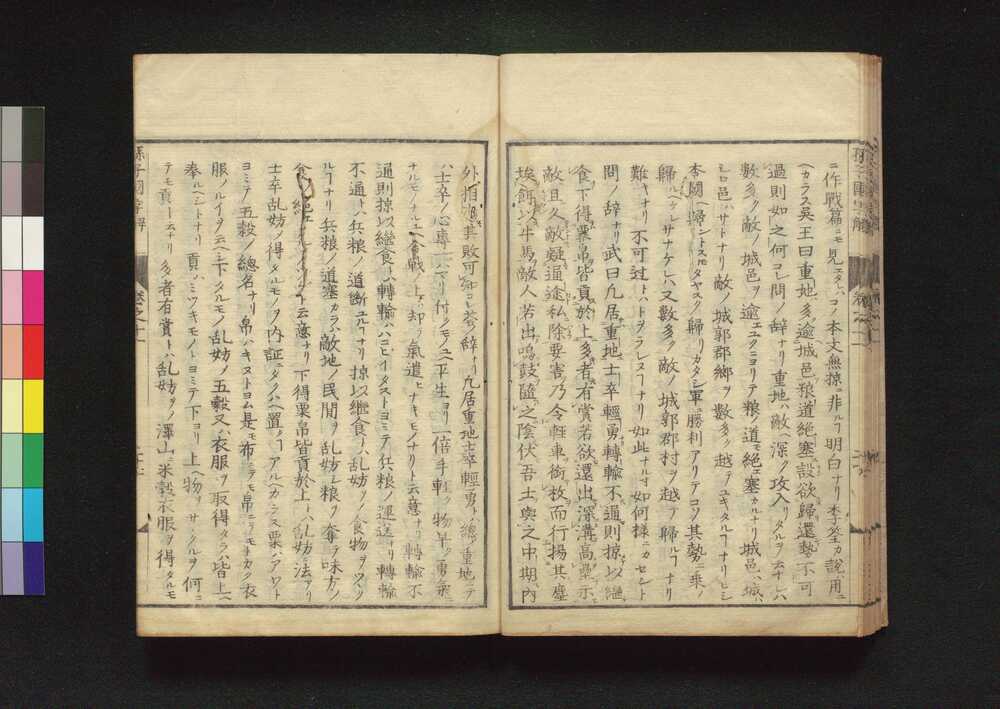 ニ作戰篇ニモ見エタル。コノ本文無掠ノ非ルフ明白ナリ李筌カ說用ニ
ヘカラス吳王曰重地多逾城邑粮道絕塞設欲歸還勢不可
過則如之何コレ問ノ辞ナリ重地ハ敵ヘ深ク攻入リタルヲ云ナリ
數多ク敵ノ城邑ヲ逾エユクニヨリテ粮道モ絕エ塞カルナリ城邑ハ城
邑ハサトナリ敵ノ城郭郡鄉ヲ數多ク越テユキタルフナリ
本國ヘ歸ントスレ𪜈タヤスク歸リカタシ軍勝利アリテコソ其勢ニ乘ノ
歸ルヘケレサナケレハ又數多ク敵ノ城郭郡村ヲ越テ歸ルフナリ
難キナリ不可過トハトヲラレヌフナリ如此ナルヰ如何樣ニカセント
問ノ辞ナリ武曰凡居重地士卒輕勇轉輸不通則掠以繼
食下得粟帛皆貢於上多者有賞若欲還出深溝高壘示
敵且久敵疑通途私除要害乃令輕車銜枚而行揚其塵
埃餌以牛馬敵人若出鳴鼓隨之陰伏吾士與之中期內
外相應其敗可知コレ荅ノ辞ナリ凡居重地士卒輕勇トハ總シテ重地ニテ
ハ士卒ノ心專一ニナリ付クモノユヘ平生ヨリ一倍手軽ク物早ク勇氣ニ
ナルモノナルユヘ合戰ノ上ニ却テ氣遣ヒナキモノナリト云意ナリ轉輸不
通則掠以繼食トハ轉輸ハハコヒイタストヨミテ兵粮ノ運送ナリ轉輸
不通トハ兵粮ノ道断ユルフナリ掠以繼食トハ乱妨ノ食物ヲツヽク
ルフナリ兵粮ノ道塞カラハ敵地ノ民間ヲ乱妨シ粮ヲ奪テ味方ノ
食ヲ繼ケト云意ナリ下得粟帛皆貢於上トハ乱妨ノ法アリ
士卒乱妨ノ得タルモノヲ内証ニタクハヘ置フアルヘカラス粟ハアワト
ヨミテ五穀ノ總名ナリ帛ハキヌトヨム是モ布ニテモ帛ニテモトカク衣
服ノルイヲ云ヘシ下タルモノ乱妨ノ五穀又ハ衣服ヲ取得タラハ皆上ヘ
奉ルヘシトナリ貢ハミツキモノトヨミテ下ヨリ上ヘ物ヲサヽクルヲ何ニ
テモ貢ト云ナリ多者有賞トハ乱妨ノ澤山ニ米穀衣服ヲ得タルモ
孫子國字解